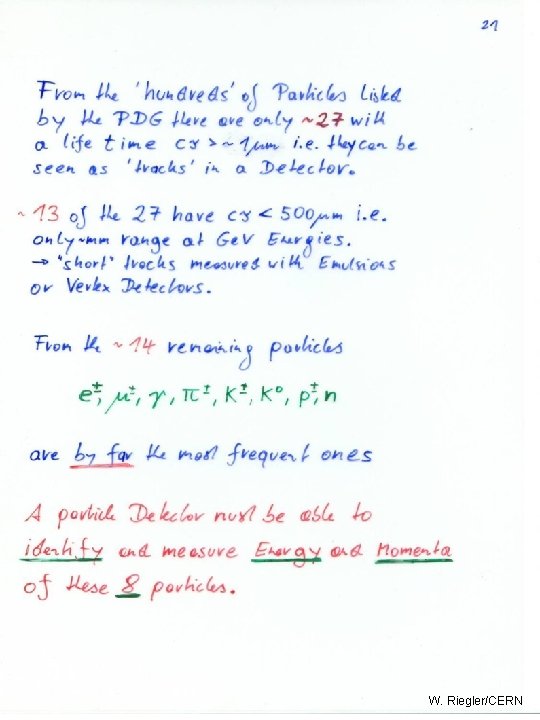 21
From the 'hundreds' of Particles listed
by the PDG there are only ~27 with
a life time cτ > ~ 1μm i.e. they can be
seen as 'tracks' in a Detector.
~ 13 of the 27 have cτ < 500μm i.e.
only ~mm range at GeV Energies.
→ "short" tracks measured with Emulsions
or Vertex Detectors.
From the ~ 14 remaining particles
e±, μ±, γ, π±, K±, K⁰, p±, n
are by far the most frequent ones
A particle Detector must be able to
identify and measure Energy and Momenta
of these 8 particles.
W. Riegler/CERN